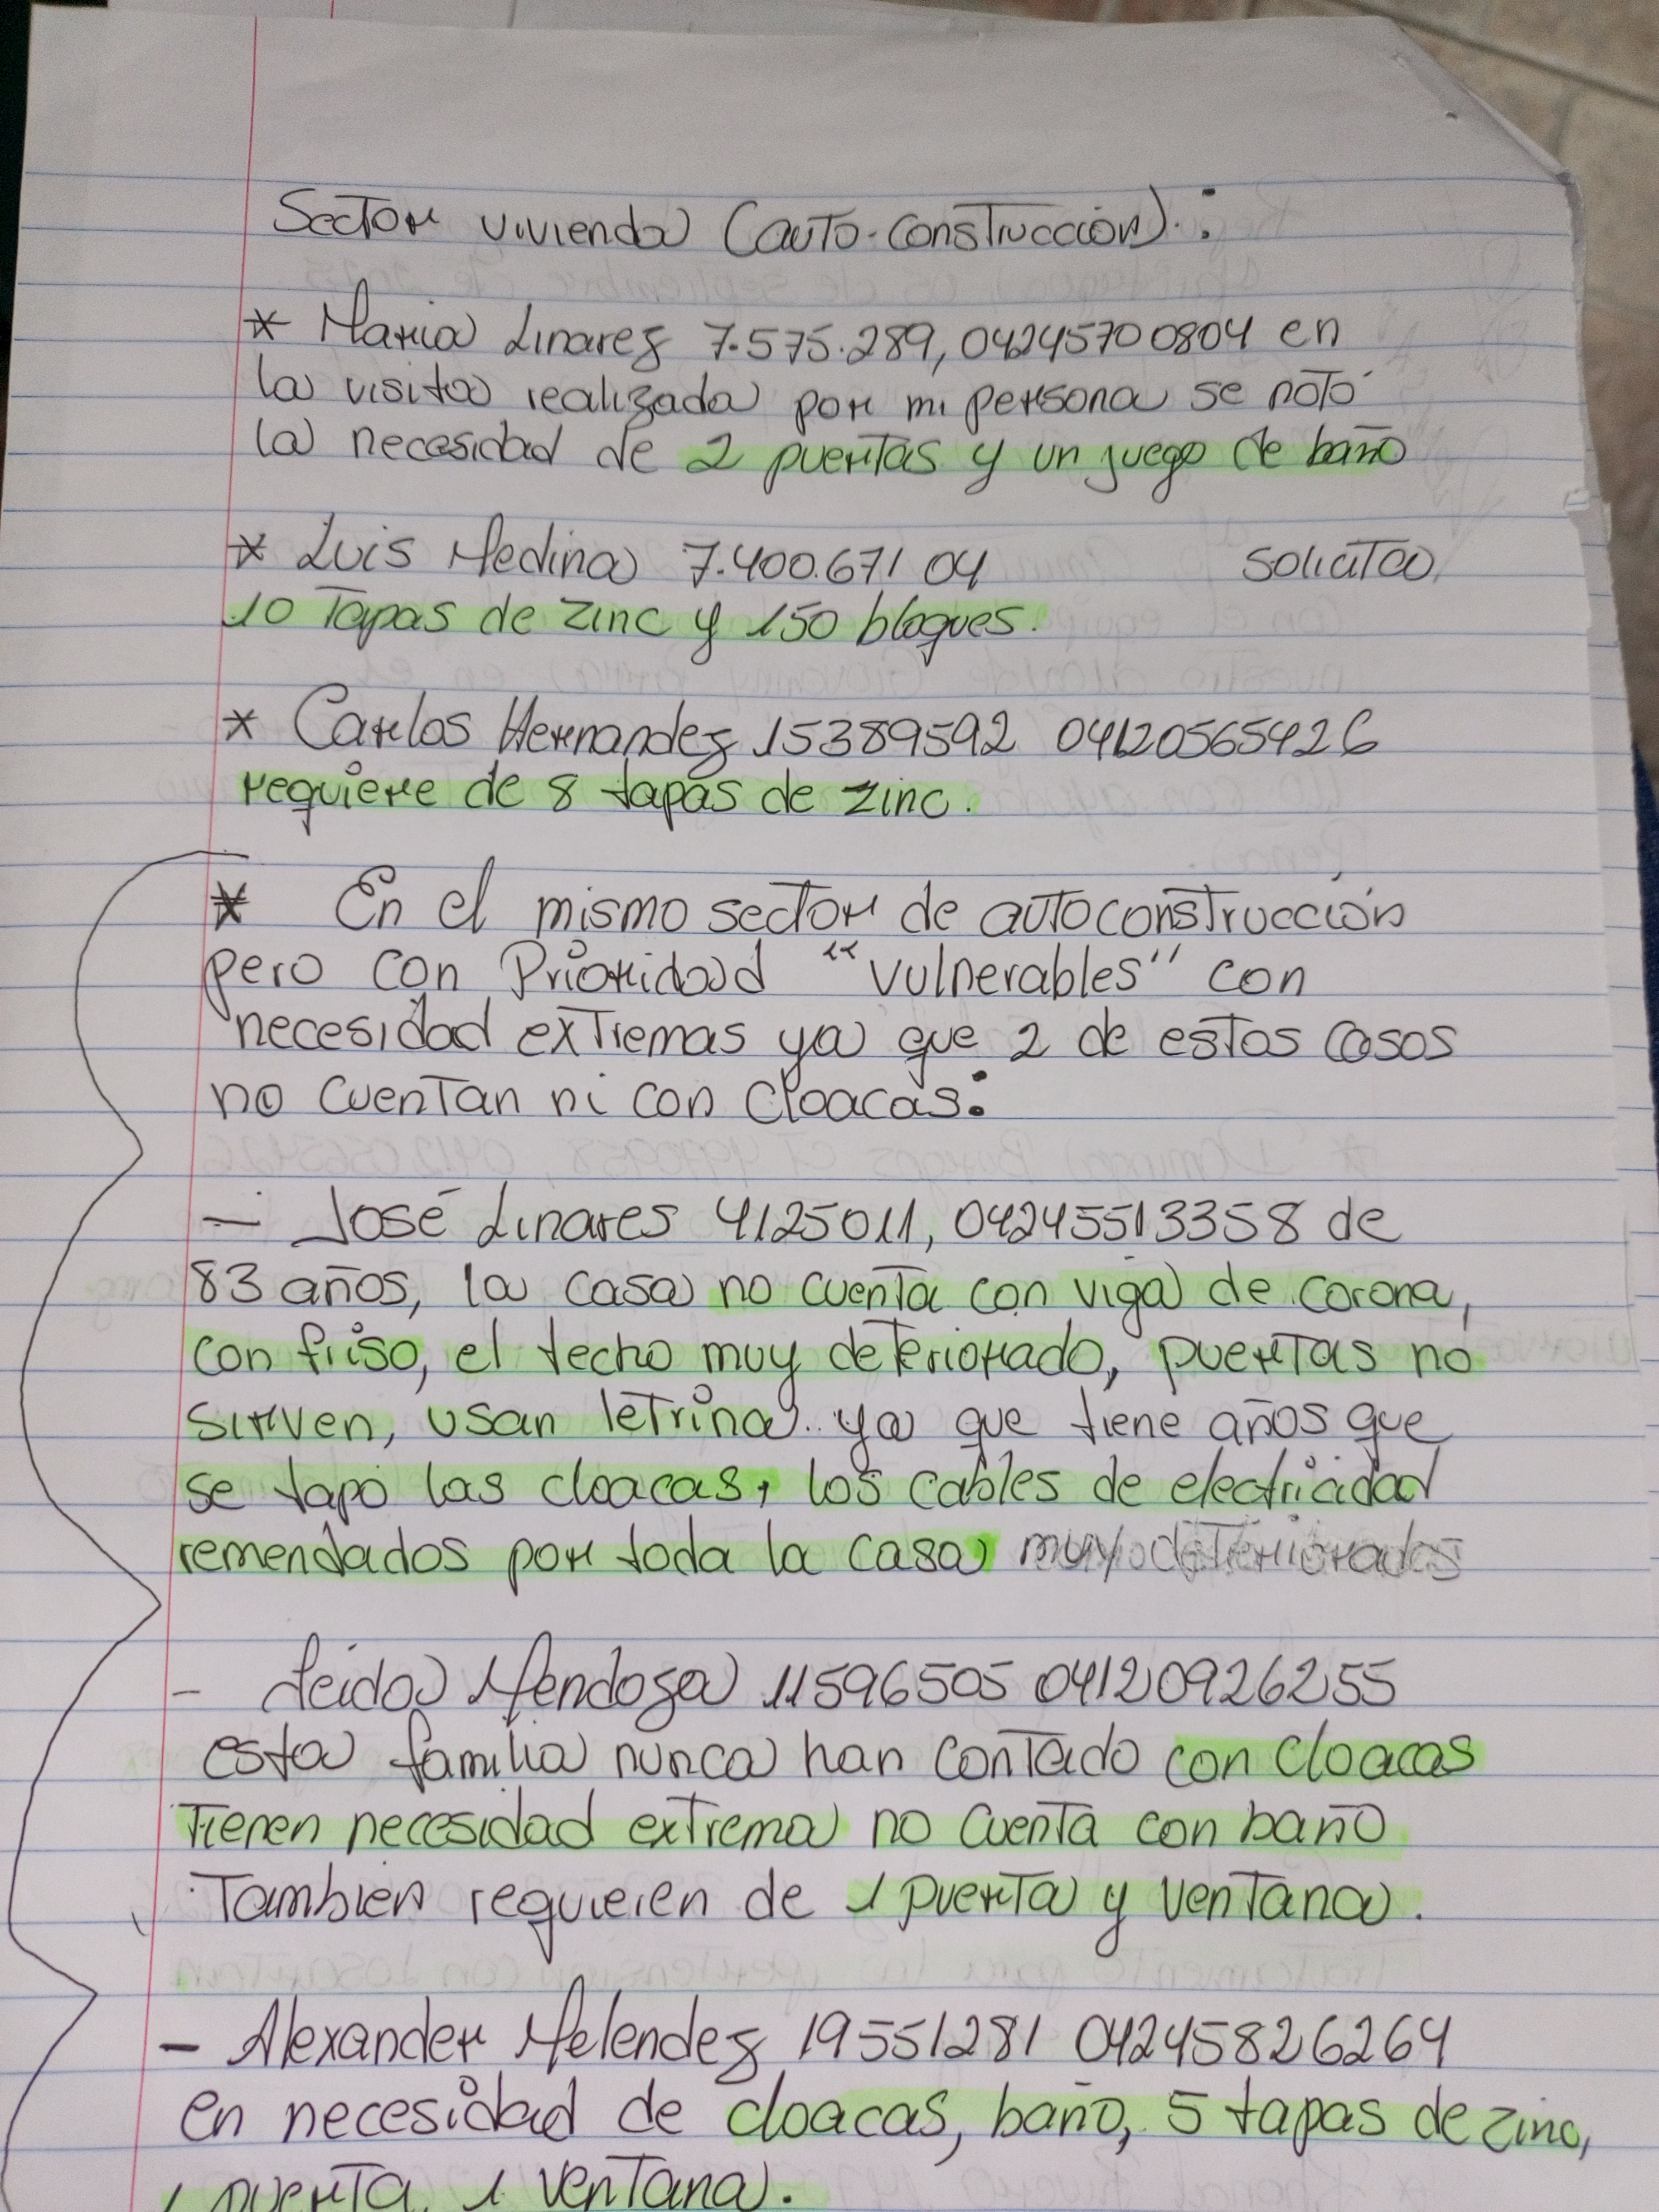 Sector vivienda (auto-construcción):
* Maria Linarez 7.575.289, 04245700804 en
la visita realizada por mi persona se notó
la necesidad de 2 puertas y un juego de baño
* Luis Medina 7.400.671 04 solicita
10 Tapas de zinc y 150 bloques.
* Carlos Hernandez 15389592 04120565426
requiere de 8 tapas de zinc.
* En el mismo sector de autoconstrucción
pero con Prioridad "vulnerables" con
necesidad extremas ya que 2 de estos casos
no cuentan ni con cloacas:
- José Linares 4125011, 04245513358 de
83 años, la casa no cuenta con viga de corona,
con friso, el techo muy deteriorado, puertas no
sirven, usan letrina. ya que tiene años que
se tapo las cloacas, los cables de electricidad
remendados por toda la casa muy deteriorados
- Leida Mendoza 11596505 04120926255
esta familia nunca han contado con cloacas
Tienen necesidad extrema no cuenta con baño
Tambien requieren de 1 puerta y ventana.
- Alexander Melendez 19551281 04245826264
en necesidad de cloacas, baño, 5 tapas de zinc,
1 puerta, 1 ventana.